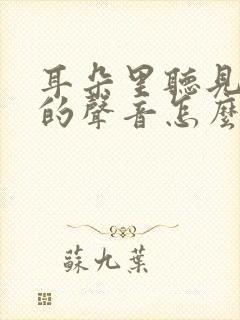 耳朵里聽見
的聲音怎麼
蘇九葉